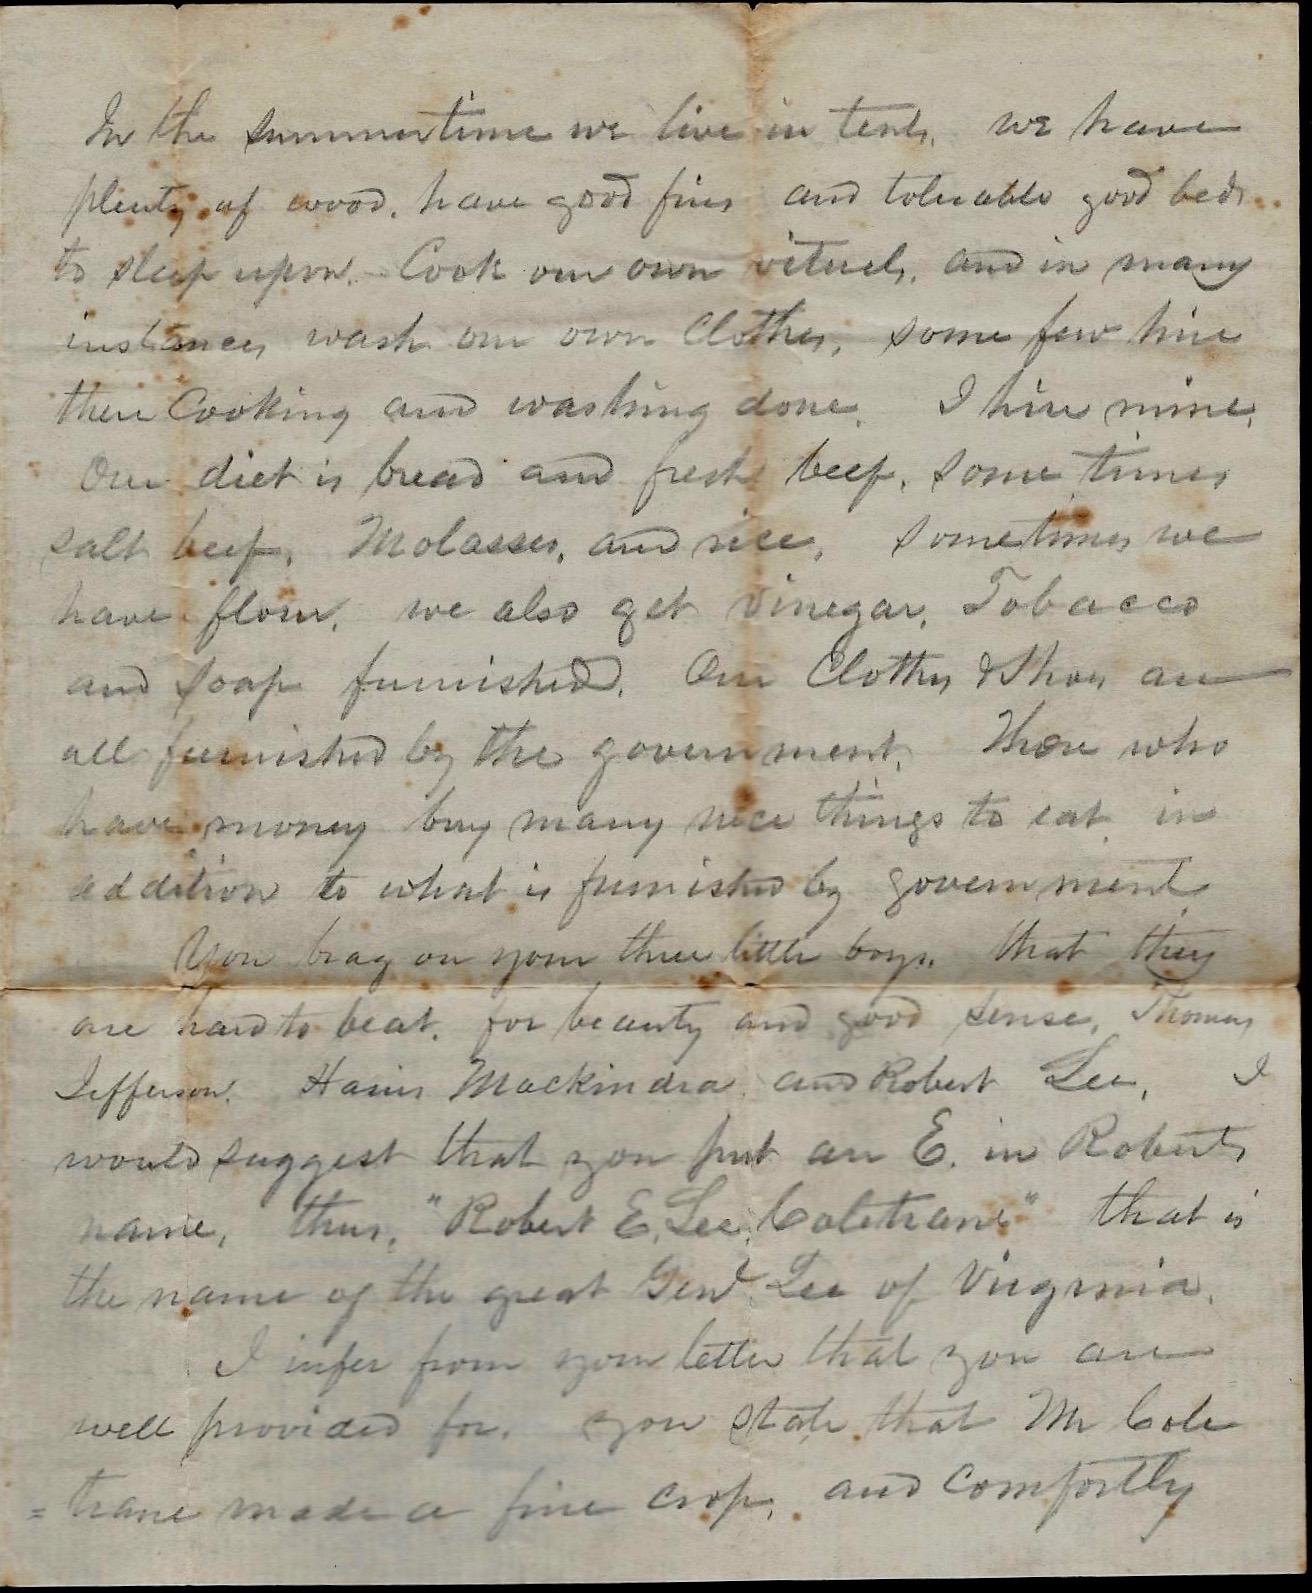 In the summertime we live in tents, we have
plenty of wood, have good fires and tolerable good beds
to sleep upon. Cook our own vituels, and in many
instances wash our own Clothes, some few hire
there Cooking and washing done. I hire mine.
Our diet is bread and fresh beef, some times
salt beef, Molasses, and rice, sometimes we
have flour, we also get vinegar, Tobacco
and soap furnished. Our Clothes & Shoes are
all furnished by the government. Those who
have money buy many nice things to eat in
addition to what is furnished by government
You brag on your three little boys, that they
are hard to beat, for beauty and good sense, Thomas
Jefferson. Harris Mackindra and Robert Lee, I
would suggest that you put an E. in Roberts
name, thus, "Robert E. Lee Coletrane" that is
the name of the great Genl Lee of Virginia.
I infer from your letter that you are
well provided for, you state that Mr Cole
=trane made a fine crop, and comfortly